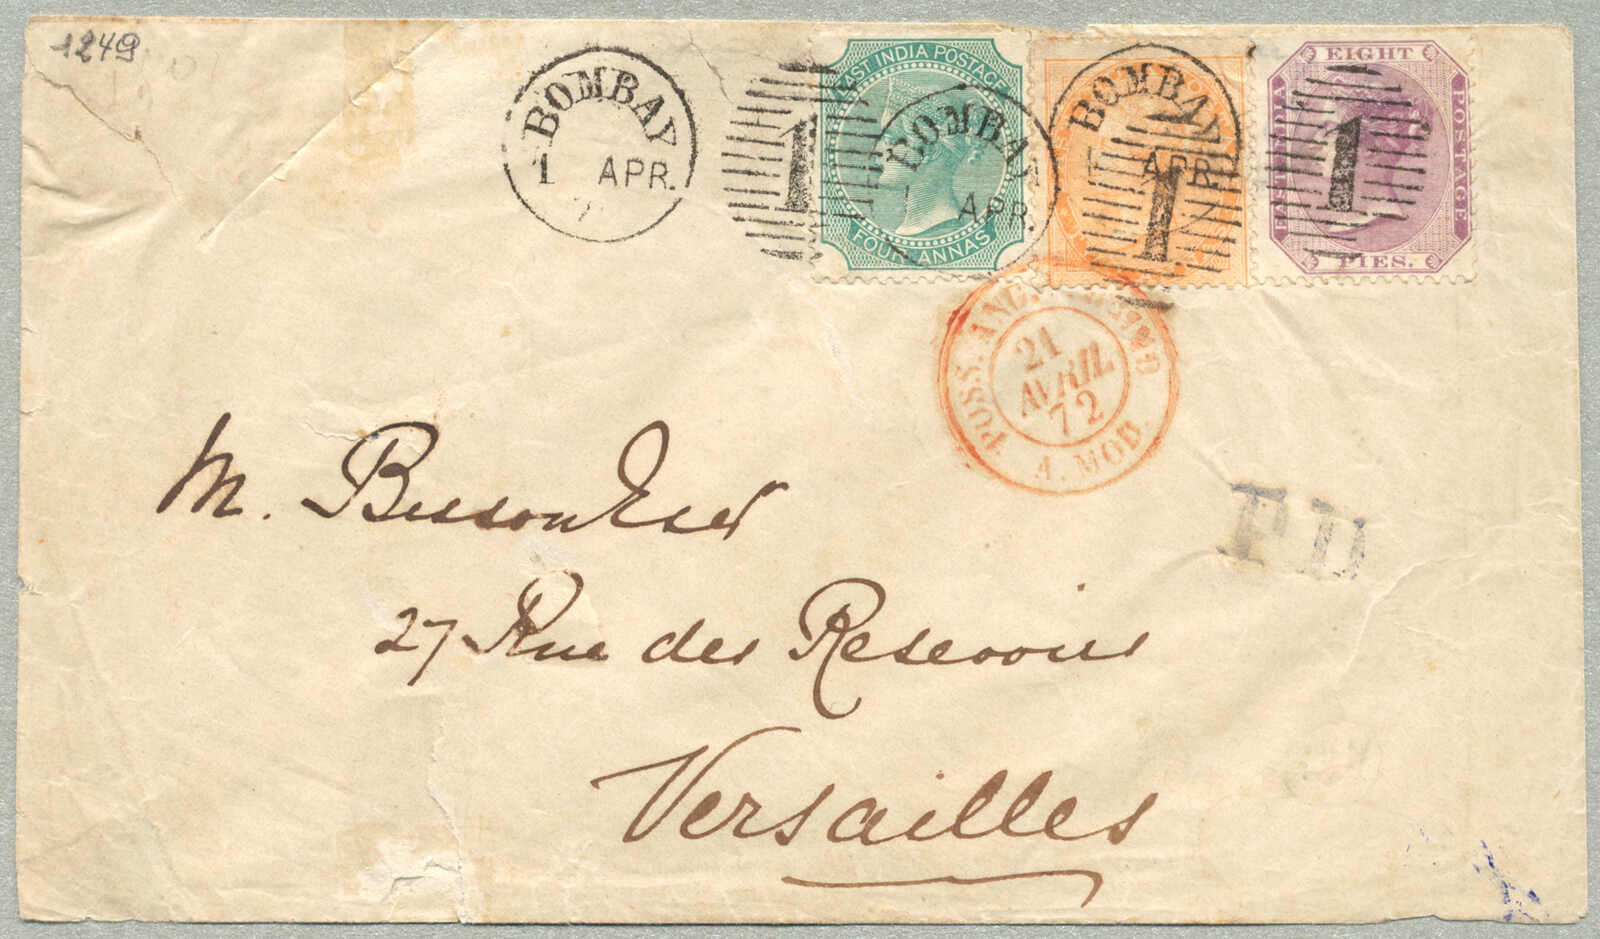 1249
BOMBAY
1 APR.
1
EAST INDIA POSTAGE
FOUR ANNAS
BOMBAY
1 APR.
BOMBAY
APR.
1
EIGHT
POSTAGE
PIES.
1
POSS. ANG.
21
AVRIL
72
A. MOD.
PD
M. Besson Esqr
27 Rue des Reservoirs
Versailles